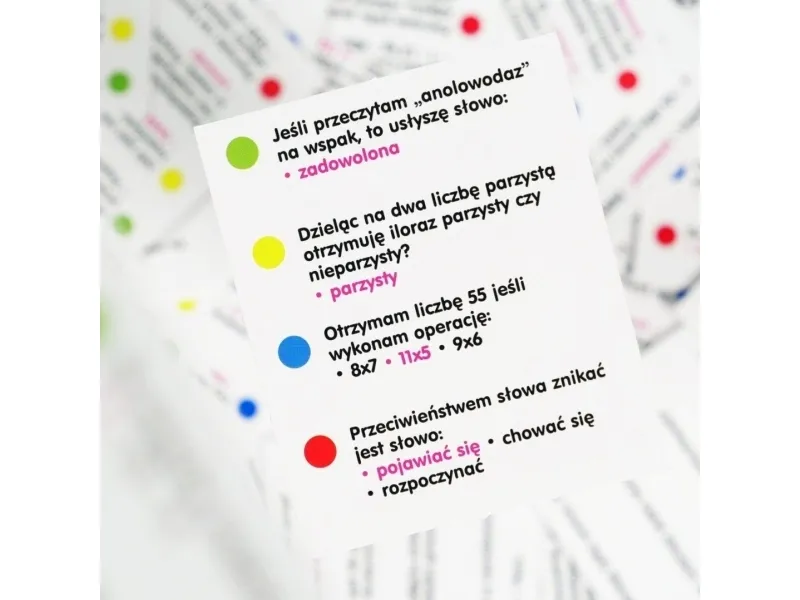 Jeśli przeczytam „anolowodaz”
na wspak, to usłyszę słowo:
• zadowolona
Dzieląc na dwa liczbę parzystą
otrzymuję iloraz parzysty czy
nieparzysty?
• parzysty
Otrzymam liczbę 55 jeśli
wykonam operację:
• 8x7 • 11x5 • 9x6
Przeciwieństwem słowa znikać
jest słowo:
• pojawiać się • chować się
• rozpoczynać